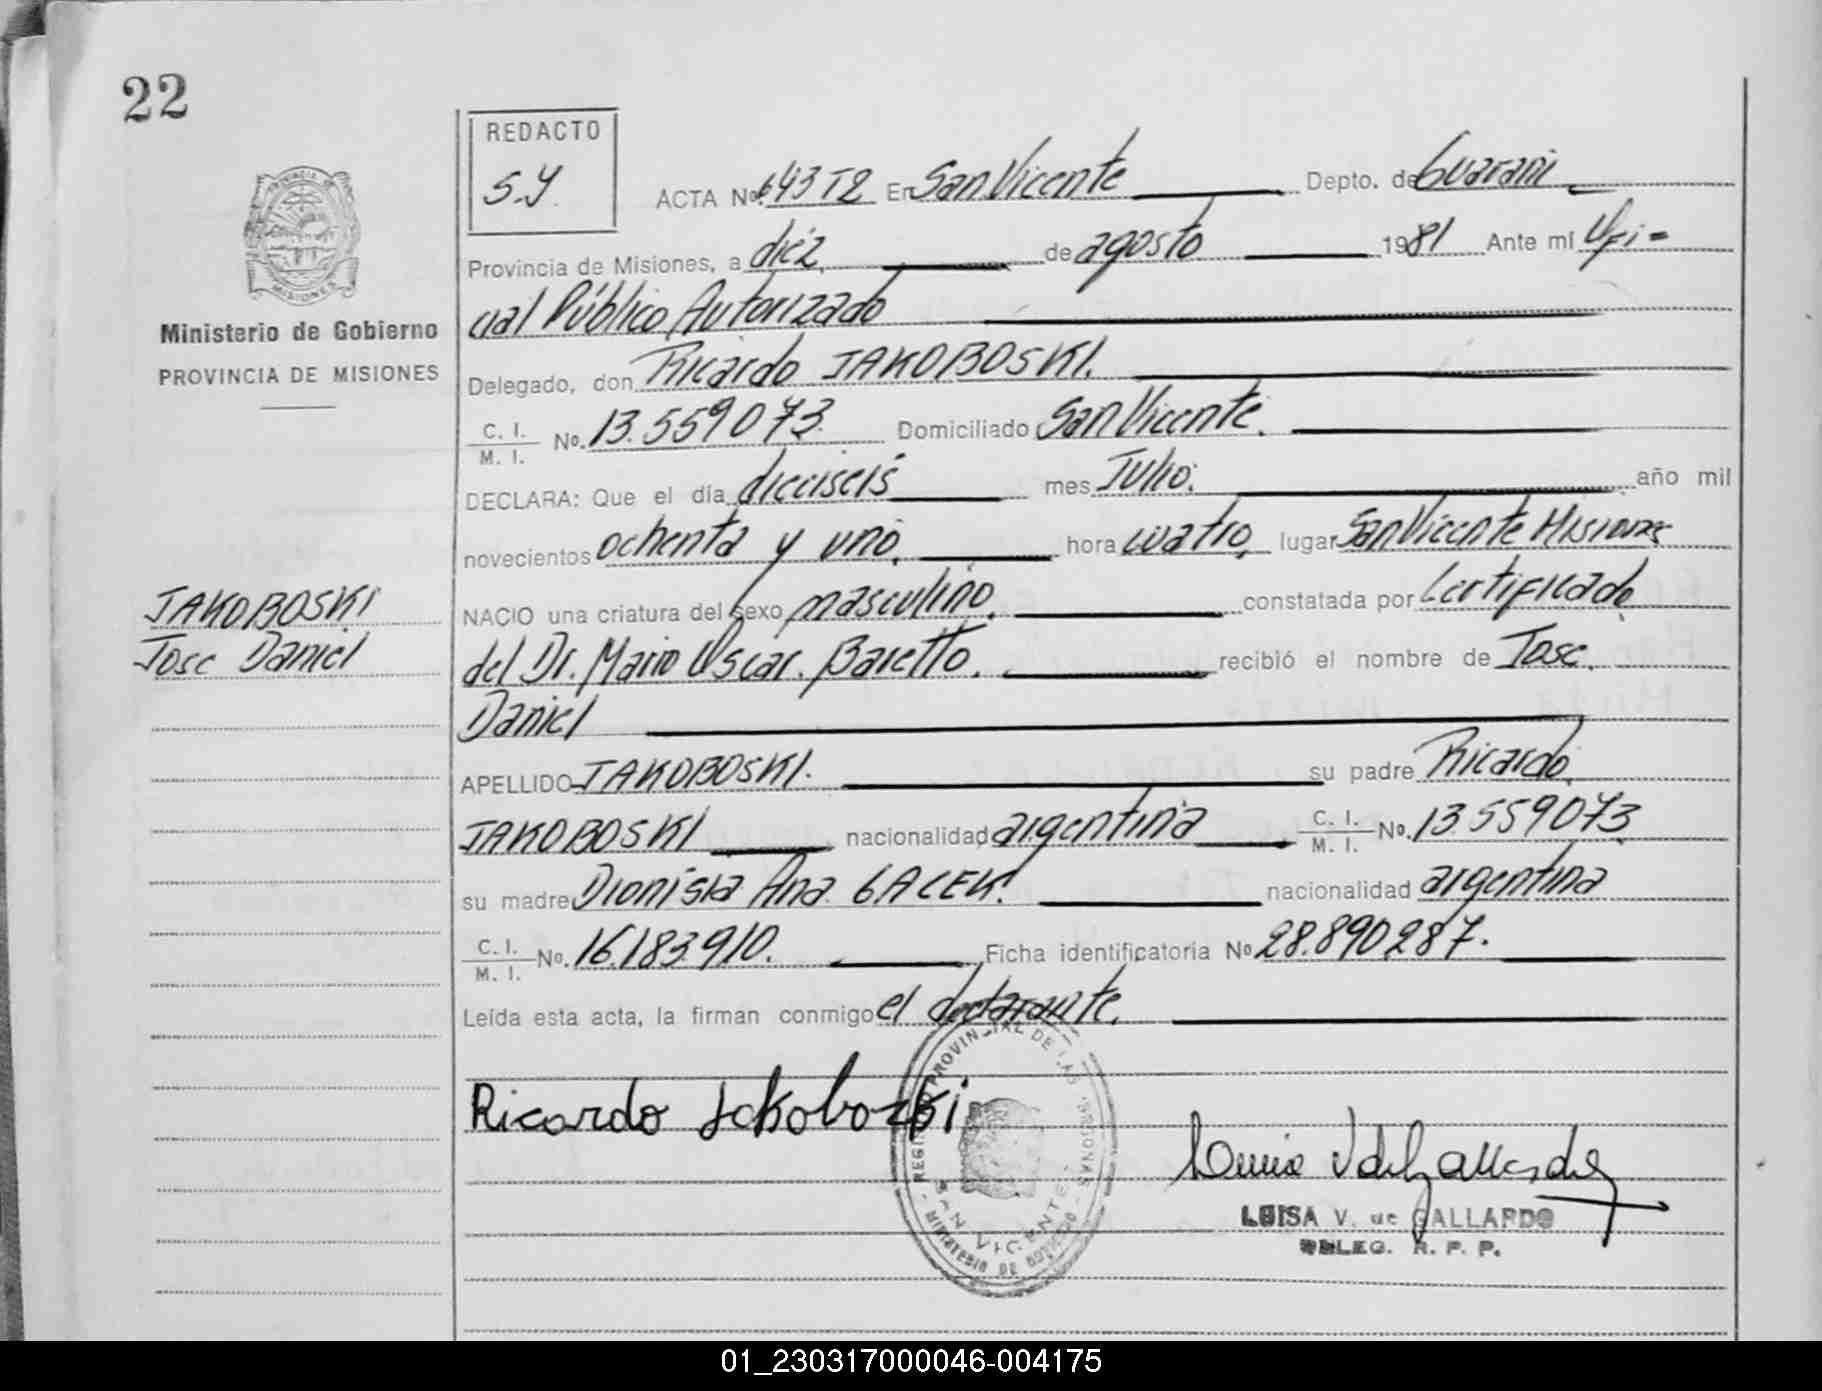 22
REDACTO
S.Y.
ACTA No. 643 T2 En San Vicente Depto. de Guaraní
Provincia de Misiones, a diéz, de agosto 1981 Ante mí Ofi=
cial Público Autorizado
Delegado, don Ricardo JAKOBOSKI.
C. I. / M. I. No. 13.559073. Domiciliado San Vicente.
DECLARA: Que el día dieciseis mes Julio. año mil
novecientos ochenta y uno, hora cuatro, lugar San Vicente Misiones
NACIO una criatura del sexo masculino, constatada por Certificado
del Dr. Mario Oscar. Baretto. recibió el nombre de Jose.
Daniel
APELLIDO JAKOBOSKI. su padre Ricardo
JAKOBOSKI nacionalidad argentina C. I. / M. I. No. 13.559073
su madre Dionisia Ana GACEK. nacionalidad argentina
C. I. / M. I. No. 16.183.910. Ficha identificatoria No 28.890287.
Leída esta acta, la firman conmigo el declarante.
Ministerio de Gobierno
PROVINCIA DE MISIONES
JAKOBOSKI
Jose Daniel
Ricardo Jakoboski
LUISA V. de GALLARDO
DELEG. R. P. P.
SAN VICENTE
01_230317000046-004175